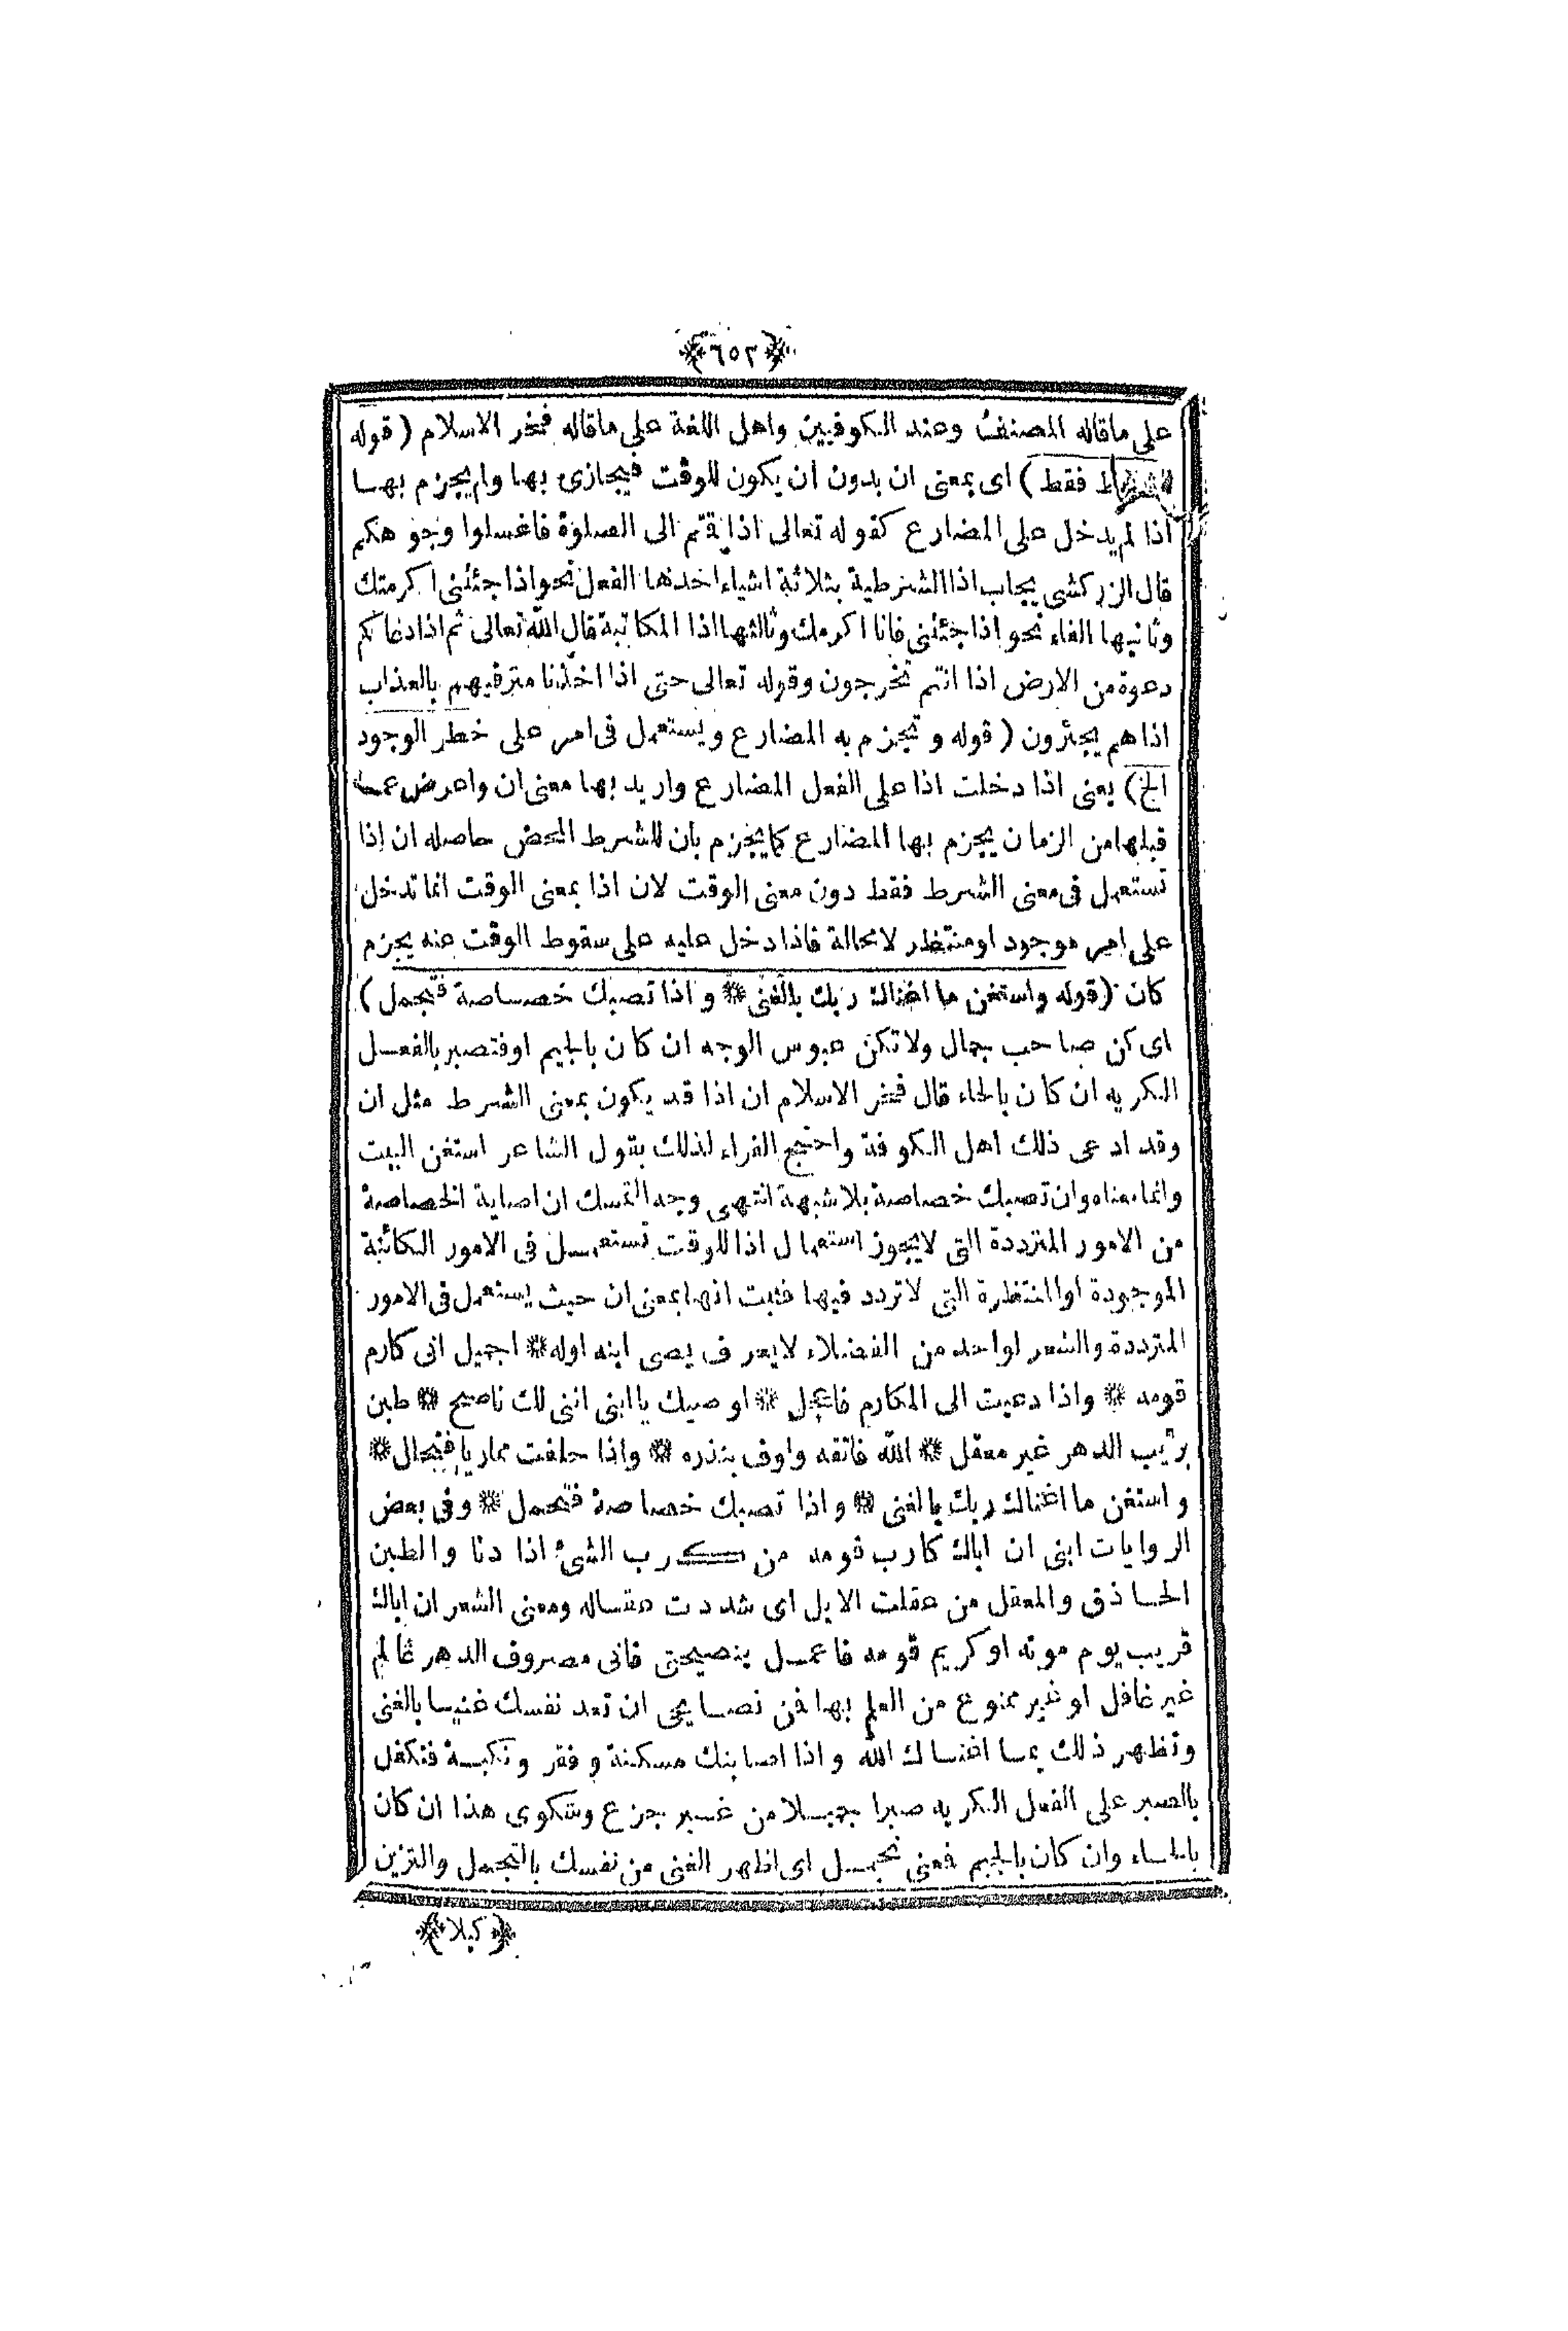 ﴿٦٥٢﴾
على ماقاله المصنف وعند الكوفيين واهل اللغة على ماقاله فخر الاسلام ( قوله
فقط ) اى بمعنى ان بدون ان يكون للوقت فيجازى بها ولم يجزم بها
اذا لم يدخل على المضارع كقوله تعالى اذا قتم الى الصلوة فاغسلوا وجوهكم
قال الزركشى يجاب اذا الشرطية بثلاثة اشياء احدها الفعل نحو اذا جئتنى اكرمتك
وثانيها الفاء نحو اذا جئتنى فانا اكرمك وثالثها اذا المكاتبة قال الله تعالى ثم اذا دعاكم
دعوة من الارض اذا انتم تخرجون وقوله تعالى حتى اذا اخذنا مترفيهم بالعذاب
اذا هم يجئرون ( قوله وتجزم به المضارع ويستعمل فى امر على خطر الوجود
الخ) يعنى اذا دخلت اذا على الفعل المضارع واريد بها معنى ان واعرض عما
قبلها من الزمان يجزم بها المضارع كما يجزم بان للشرط المحض حاصله ان اذا
تستعمل فى معنى الشرط فقط دون معنى الوقت لان اذا بمعنى الوقت انما تدخل
على امر موجود او منتظر لامحالة فاذا دخل عليه على سقوط الوقت عنه يجزم
كان (قوله واستغن ما اغناك ربك بالغنى * واذا تصبك خصاصة فتجمل )
اى كن صاحب جمال ولا تكن عبوس الوجه ان كان بالجيم او فتصبر بالفعل
الكريه ان كان بالحاء قال فخر الاسلام ان اذا قد يكون بمعنى الشرط مثل ان
وقد ادعى ذلك اهل الكوفة واحتج الفراء لذلك بقول الشاعر استغن البيت
وانما معناه وان تصبك خصاصة بلا شبهة انتهى وجه التمسك ان اصابة الخصاصة
من الامور المترددة التى لايجوز استعمال اذا للوقت تستعمل فى الامور الكائنة
الموجودة او المنتظرة التى لاتردد فيها فثبت انها بمعنى ان حيث يستعمل فى الامور
المترددة والشعر لواحد من الفضلاء لايعرف يصى ابنه اوله * اجميل انى كارم
قومه * واذا دعيت الى المكارم فاعجل * اوصيك يا ابنى اننى لك ناصح * طبن
بريب الدهر غير معقل * الله فاتقه واوف بنذره * واذا حلفت مماريا فتحلل *
واستغن ما اغناك ربك بالغنى * واذا تصبك خصاصة فتحمل * وفى بعض
الروايات ابنى ان اباك كارب قومه من كرب الشئ اذا دنا والطبن
الحاذق والمعقل من عقلت الابل اى شددت عقاله ومعنى الشعر ان اباك
قريب يوم موته او كريم قومه فاعمل بنصيحتى فانى مصروف الدهر عالم
غير غافل او غير ممنوع من العلم بها فمن نصايحى ان تعد نفسك غنيا بالغنى
وتظهر ذلك بما اغناك الله واذا اصابتك مسكنة وفقر ونكبة فتكفل
بالصبر على الفعل الكريه صبرا جميلا من غير جزع وشكوى هذا ان كان
بالحاء وان كان بالجيم فمعنى تجمل اى اظهر الغنى من نفسك بالتجمل والتزين
﴿كيلا﴾